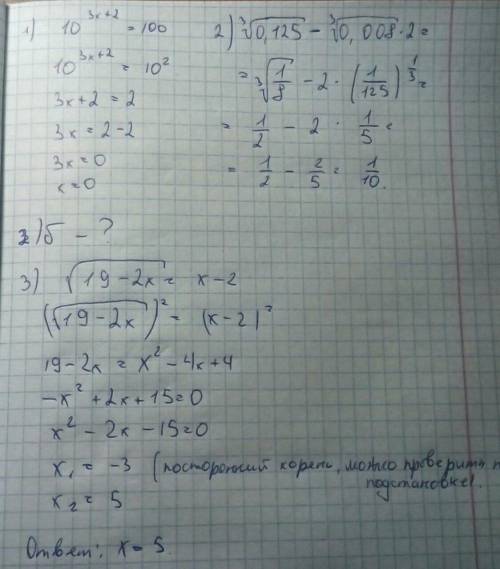 1) 10^{3x+2} = 100
10^{3x+2} = 10^2
3x+2 = 2
3x = 2-2
3x = 0
x = 0
2) ∛0,125 - ∛0,008 · 2 =
= ∛(1/8) - 2 · (1/125)^{1/3} =
= 1/2 - 2 · 1/5 =
= 1/2 - 2/5 = 1/10.
2) б - ?
3) √(19-2x) = x-2
(√(19-2x))^2 = (x-2)^2
19-2x = x^2 - 4x+4
-x^2 + 2x + 15 = 0
x^2 - 2x - 15 = 0
x₁ = -3 (посторонний корень, можно проверить п
подстановке).
x₂ = 5
Ответ: x = 5